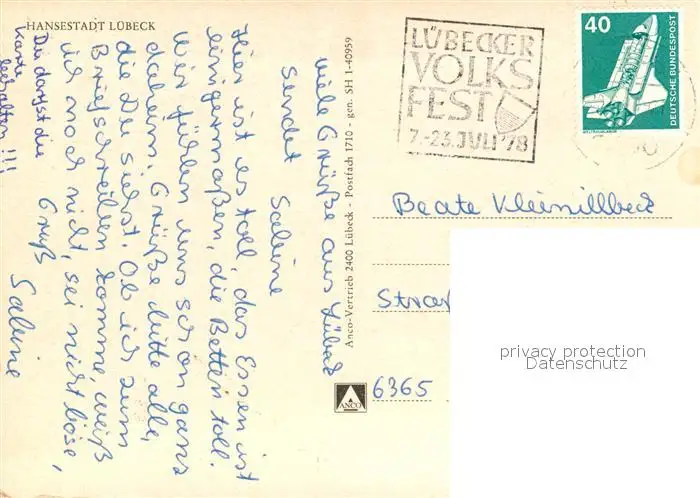 HANSESTADT LÜBECK
Viele Grüße aus Lübeck
sendet Sabine
Hier ist es toll, das Essen ist
einigermaßen, die Betten toll.
Wir fühlen uns schon ganz
daheim. Grüße bitte alle,
die Du siehst. Ob ich zum
Briefschreiben komme, weiß
ich noch nicht, sei nicht böse,
Gruß Sabine
Du darfst die
Karte
behalten!!!
Anco-Vertrieb 2400 Lübeck - Postfach 1710 - gen. SH 1-40959
ANCO
LÜBECKER
VOLKS
FEST
7.-23. JULI '78
40
DEUTSCHE BUNDESPOST
WELTRAUMLABOR
Beate Kleinillbeck
Straß
6365
privacy protection
Datenschutz